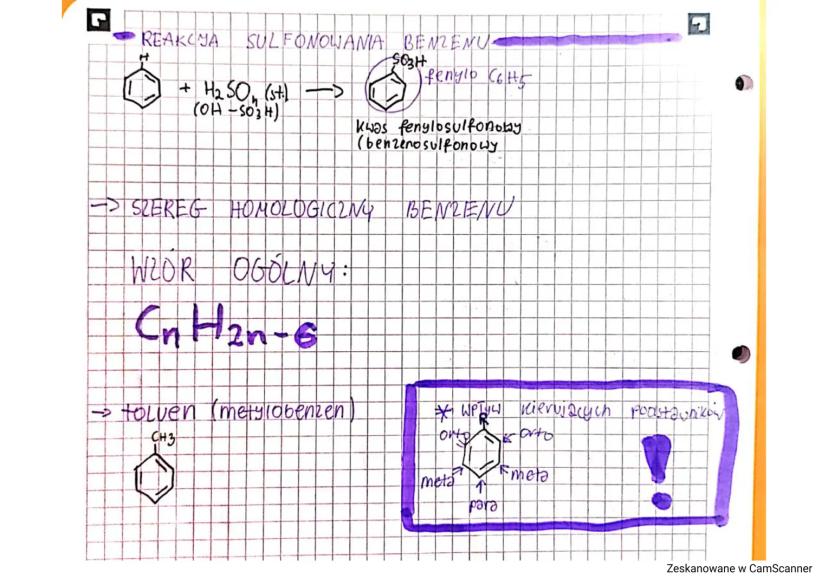 REAKCJA SULFONOWANIA BENZENU
H
SO3H
+ H2SO4 (st.) →
fenylo C6H5
(OH-SO3H)
kwas fenylosulfonowy
(benzenosulfonowy
→ SZEREG HOMOLOGICZNY BENZENU
WZÓR OGÓLNY:
CnH2n-6
→ toluen (metylobenzen)
CH3
* wpływ kierujących podstawników
R
orto
orto
meta
meta
para
!
Zeskanowane w CamScanner